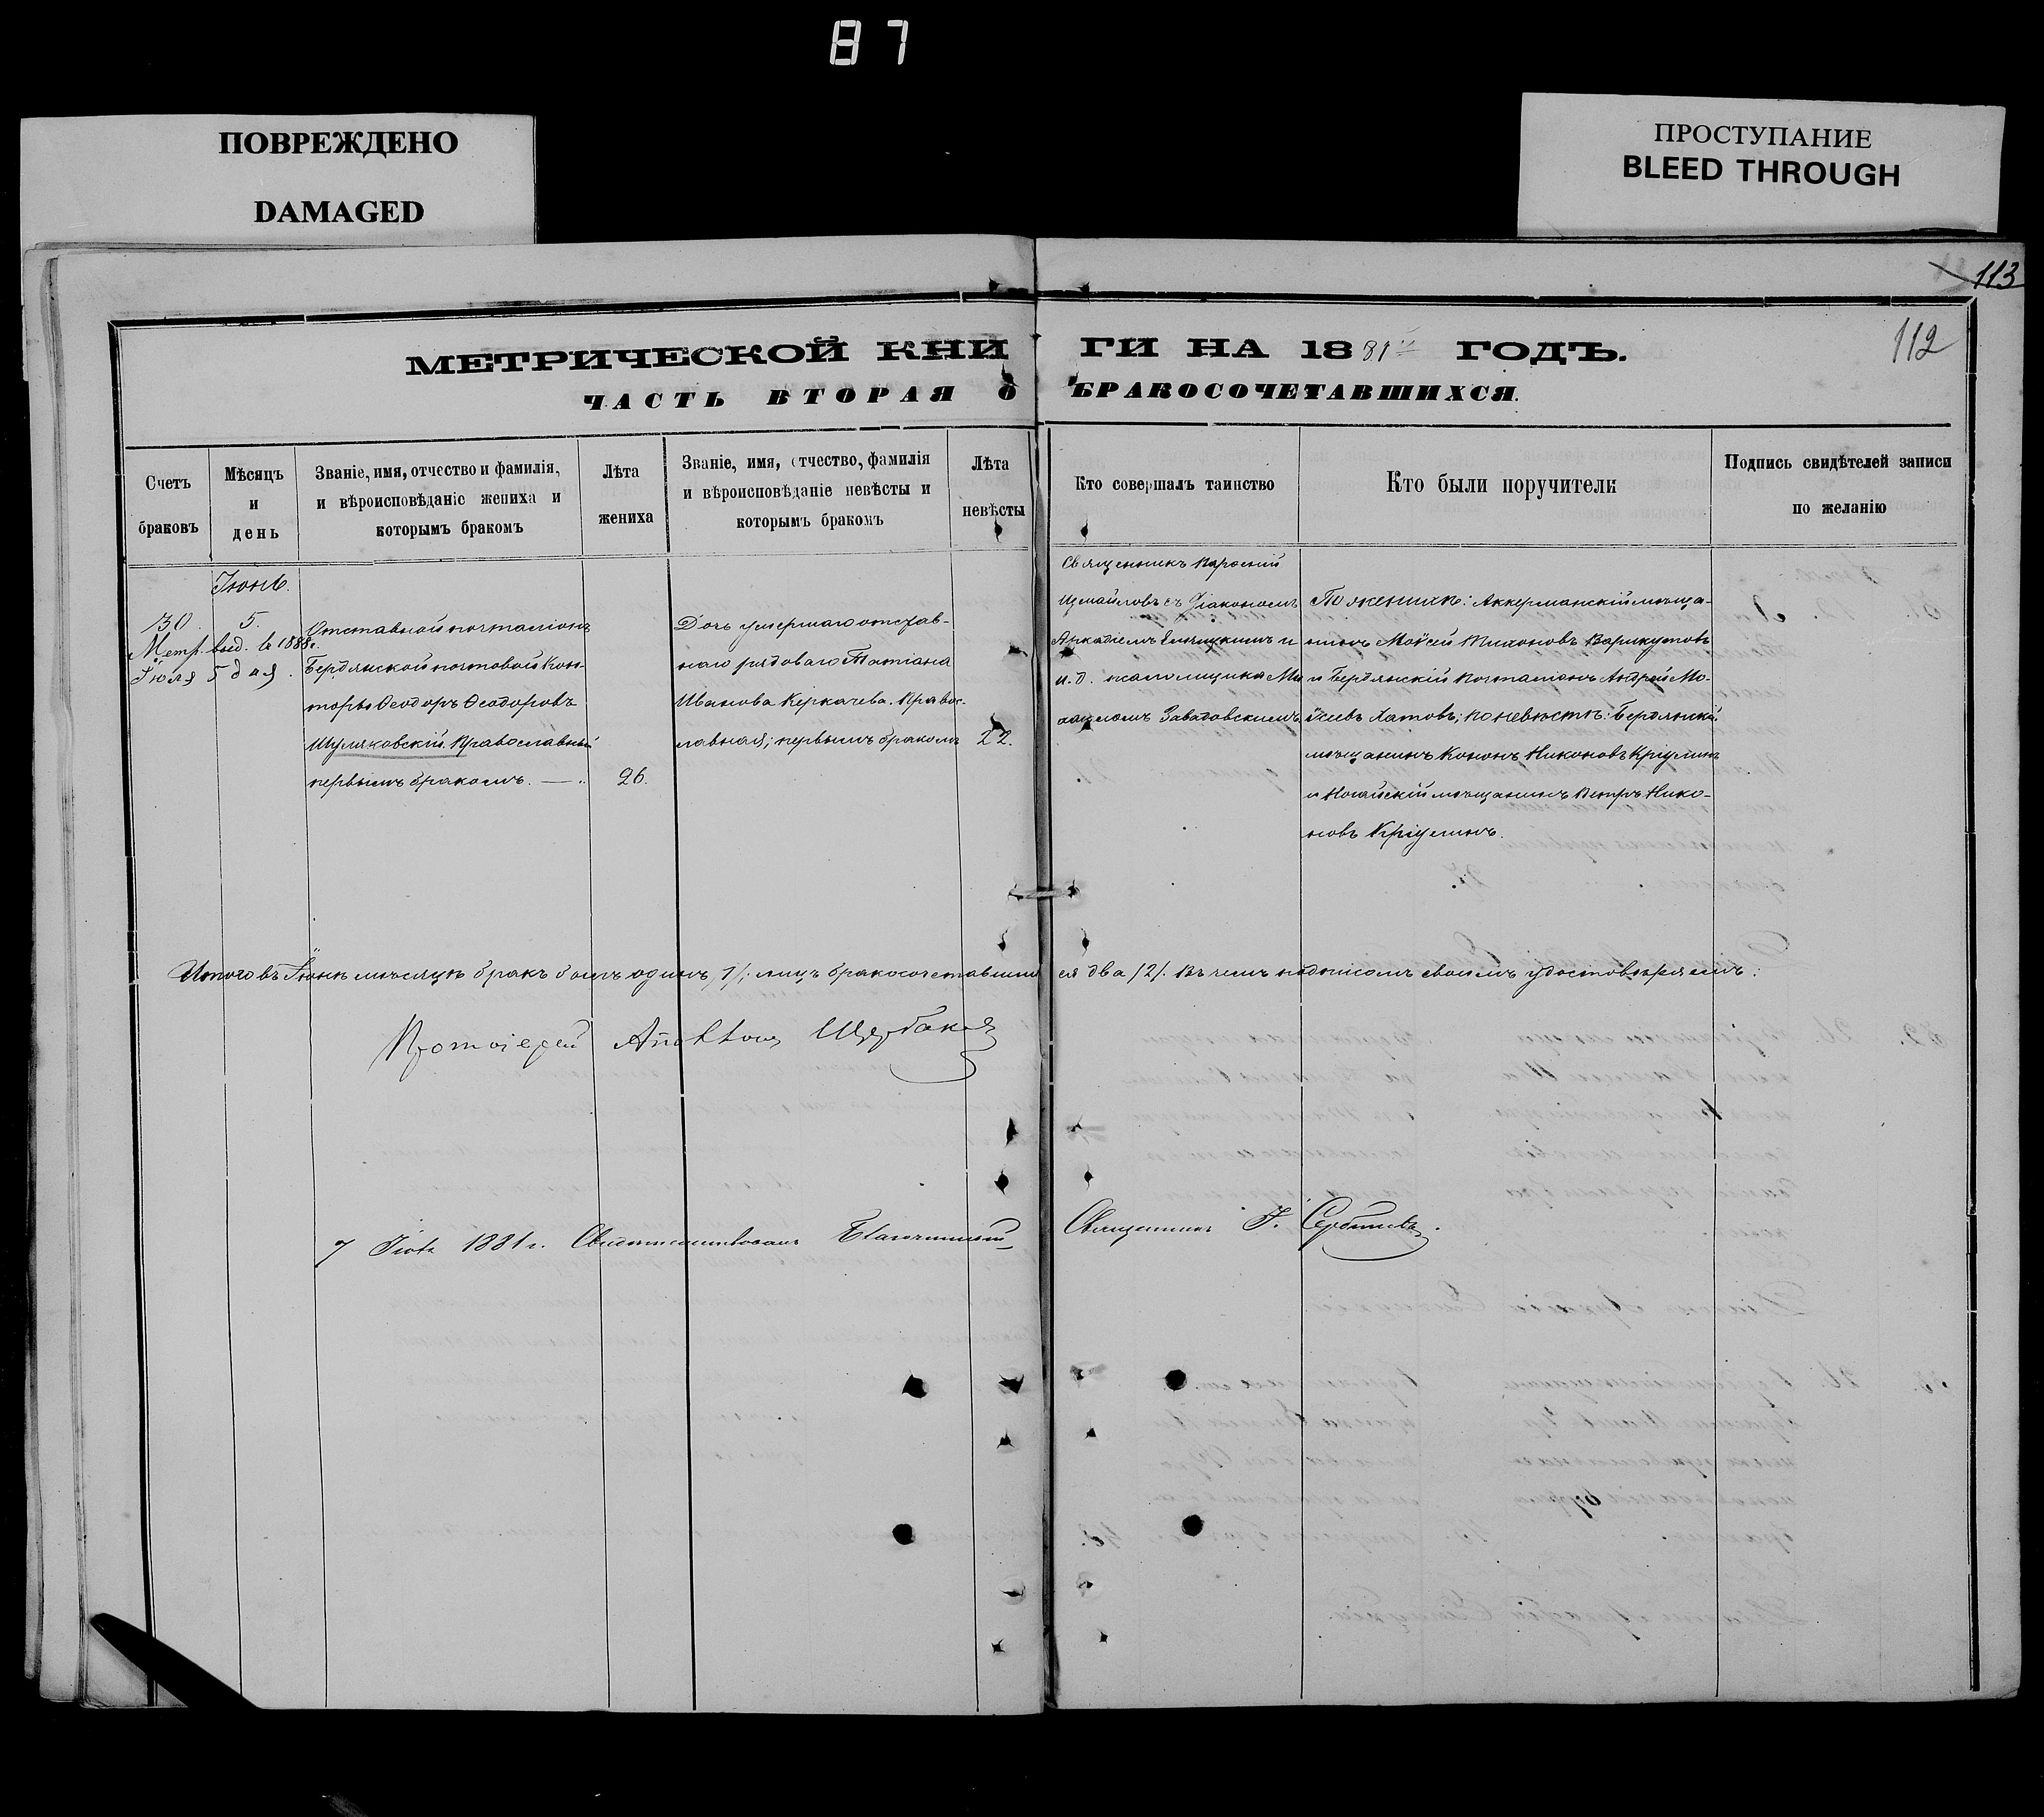 87
ПОВРЕЖДЕНО
DAMAGED
ПРОСТУПАНИЕ
BLEED THROUGH
113
112
МЕТРИЧЕСКОЙ КНИГИ НА 1881 ГОДЪ.
ЧАСТЬ ВТОРАЯ О БРАКОСОЧЕТАВШИХСЯ.
Счетъ
браковъ
Мѣсяцъ
и
день
Званіе, имя, отчество и фамилія,
и вѣроисповѣданіе жениха и
которымъ бракомъ
Лѣта
жениха
Званіе, имя, отчество, фамилія
и вѣроисповѣданіе невѣсты и
которымъ бракомъ
Лѣта
невѣсты
Кто совершалъ таинство
Кто были поручители
Подпись свидѣтелей записи
по желанію
Іюнь.
30.
5.
Метр. выд. въ 1888г.
Іюля 5 дая.
Отставной почталіонъ
Бердянской почтовой Кон-
торы Ѳеодоръ Ѳеодоровъ
Шуляковскій. Православный
первымъ бракомъ. —
26.
Дочь умершаго отстав-
наго рядоваго Татіана
Иванова Керкачева. Правос-
лавная; первымъ бракомъ
22.
Священникъ
Измайловъ съ Діакономъ
Аркадіемъ и
и. д. псаломщика Ми
хаиломъ Завадовскимъ
По женихѣ: Аккерманскій мѣща-
нинъ Моѵсей Тихоновъ
и Бердянскій Почталіонъ Андрей Мо-
ѵсеевъ Хатовъ; по невѣстѣ: Бердянскій
мѣщанинъ Кононъ Никоновъ Кріулинъ
и Ногайскій мѣщанинъ Петръ Нико-
новъ Кріулинъ.
Итого въ Іюнѣ мѣсяцѣ бракъ былъ одинъ /1/; лицъ бракосочетавшихся два /2/. Въ чемъ подписомъ своимъ удостовѣряемъ:
Протоіерей Щербаковъ
7 1881 г. Свидѣтельствовалъ Благочинный Священникъ І. Сербиновъ.